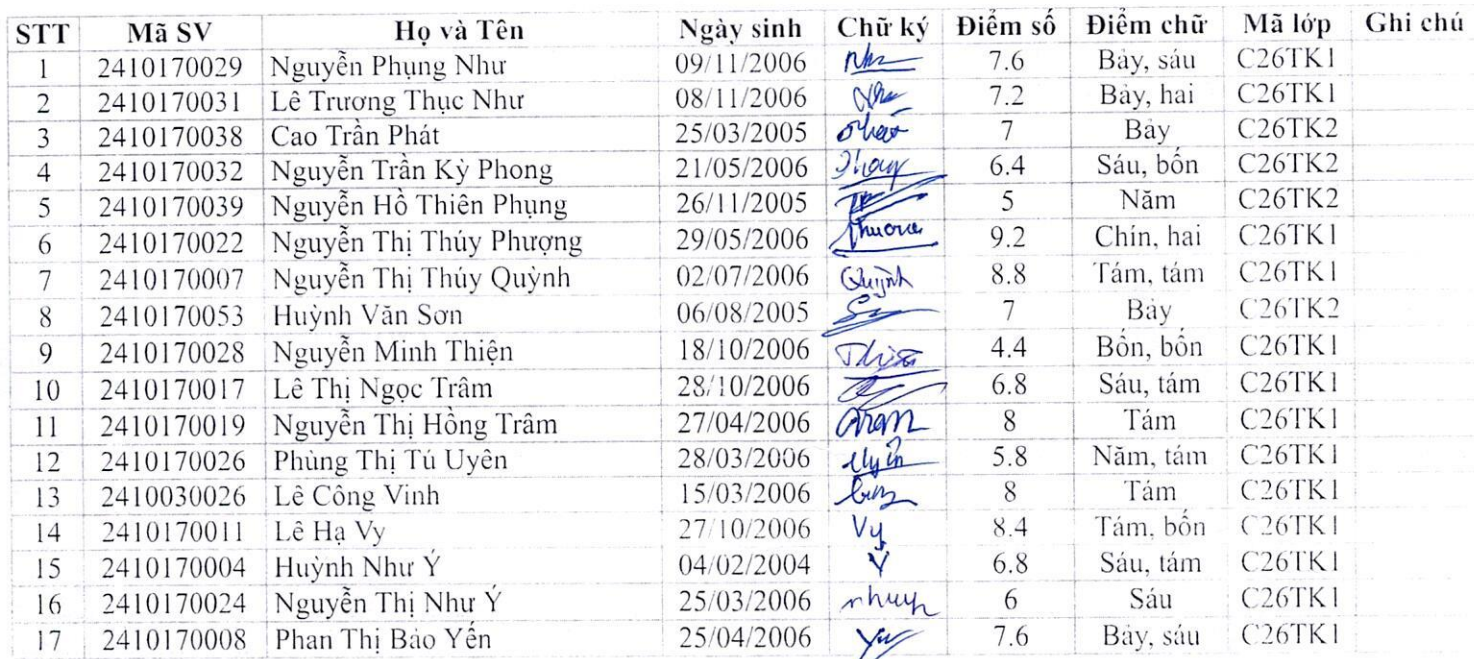 STT Mã SV Họ và Tên Ngày sinh Chữ ký Điểm số Điểm chữ Mã lớp Ghi chú
1 2410170029 Nguyễn Phụng Như 09/11/2006 Như 7.6 Bảy, sáu C26TK1
2 2410170031 Lê Trương Thục Như 08/11/2006 7.2 Bảy, hai C26TK1
3 2410170038 Cao Trần Phát 25/03/2005 7 Bảy C26TK2
4 2410170032 Nguyễn Trần Kỳ Phong 21/05/2006 6.4 Sáu, bốn C26TK2
5 2410170039 Nguyễn Hồ Thiên Phụng 26/11/2005 5 Năm C26TK2
6 2410170022 Nguyễn Thị Thúy Phượng 29/05/2006 9.2 Chín, hai C26TK1
7 2410170007 Nguyễn Thị Thúy Quỳnh 02/07/2006 Quỳnh 8.8 Tám, tám C26TK1
8 2410170053 Huỳnh Văn Sơn 06/08/2005 7 Bảy C26TK2
9 2410170028 Nguyễn Minh Thiện 18/10/2006 4.4 Bốn, bốn C26TK1
10 2410170017 Lê Thị Ngọc Trâm 28/10/2006 6.8 Sáu, tám C26TK1
11 2410170019 Nguyễn Thị Hồng Trâm 27/04/2006 8 Tám C26TK1
12 2410170026 Phùng Thị Tú Uyên 28/03/2006 5.8 Năm, tám C26TK1
13 2410030026 Lê Công Vinh 15/03/2006 8 Tám C26TK1
14 2410170011 Lê Hạ Vy 27/10/2006 Vy 8.4 Tám, bốn C26TK1
15 2410170004 Huỳnh Như Ý 04/02/2004 Ý 6.8 Sáu, tám C26TK1
16 2410170024 Nguyễn Thị Như Ý 25/03/2006 6 Sáu C26TK1
17 2410170008 Phan Thị Bảo Yến 25/04/2006 7.6 Bảy, sáu C26TK1